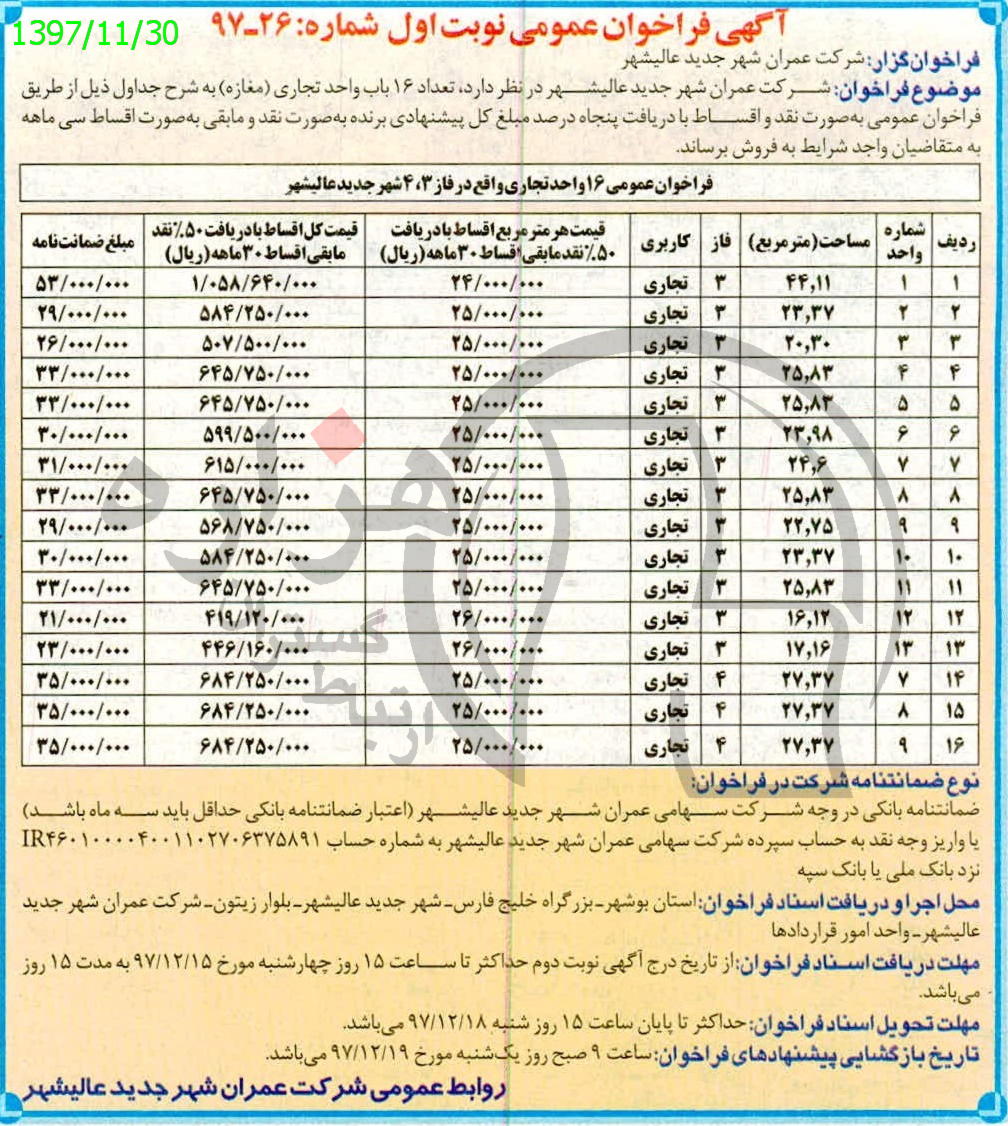 1397/11/30
آگهی فراخوان عمومی نوبت اول شماره: ۲۶ـ۹۷
فراخوان‌گزار: شرکت عمران شهر جدید عالیشهر
موضوع فراخوان: شرکت عمران شهر جدید عالیشهر در نظر دارد، تعداد ۱۶ باب واحد تجاری (مغازه) به شرح جداول ذیل از طریق
فراخوان عمومی به‌صورت نقد و اقساط با دریافت پنجاه درصد مبلغ کل پیشنهادی برنده به‌صورت نقد و مابقی به‌صورت اقساط سی ماهه
به متقاضیان واجد شرایط به فروش برساند.
فراخوان عمومی ۱۶ واحد تجاری واقع در فاز ۳، ۴ شهر جدید عالیشهر
ردیف شماره واحد مساحت (مترمربع) فاز کاربری قیمت هر مترمربع اقساط با دریافت ۵۰٪ نقد مابقی اقساط ۳۰ ماهه (ریال) قیمت کل اقساط با دریافت ۵۰٪ نقد مابقی اقساط ۳۰ ماهه (ریال) مبلغ ضمانت‌نامه
۱ ۱ ۴۴,۱۱ ۳ تجاری ۲۴/۰۰۰/۰۰۰ ۱/۰۵۸/۶۴۰/۰۰۰ ۵۳/۰۰۰/۰۰۰
۲ ۲ ۲۳,۳۷ ۳ تجاری ۲۵/۰۰۰/۰۰۰ ۵۸۴/۲۵۰/۰۰۰ ۲۹/۰۰۰/۰۰۰
۳ ۳ ۲۰,۳۰ ۳ تجاری ۲۵/۰۰۰/۰۰۰ ۵۰۷/۵۰۰/۰۰۰ ۲۶/۰۰۰/۰۰۰
۴ ۴ ۲۵,۸۳ ۳ تجاری ۲۵/۰۰۰/۰۰۰ ۶۴۵/۷۵۰/۰۰۰ ۳۳/۰۰۰/۰۰۰
۵ ۵ ۲۵,۸۳ ۳ تجاری ۲۵/۰۰۰/۰۰۰ ۶۴۵/۷۵۰/۰۰۰ ۳۳/۰۰۰/۰۰۰
۶ ۶ ۲۳,۹۸ ۳ تجاری ۲۵/۰۰۰/۰۰۰ ۵۹۹/۵۰۰/۰۰۰ ۳۰/۰۰۰/۰۰۰
۷ ۷ ۲۴,۶ ۳ تجاری ۲۵/۰۰۰/۰۰۰ ۶۱۵/۰۰۰/۰۰۰ ۳۱/۰۰۰/۰۰۰
۸ ۸ ۲۵,۸۳ ۳ تجاری ۲۵/۰۰۰/۰۰۰ ۶۴۵/۷۵۰/۰۰۰ ۳۳/۰۰۰/۰۰۰
۹ ۹ ۲۲,۷۵ ۳ تجاری ۲۵/۰۰۰/۰۰۰ ۵۶۸/۷۵۰/۰۰۰ ۲۹/۰۰۰/۰۰۰
۱۰ ۱۰ ۲۳,۳۷ ۳ تجاری ۲۵/۰۰۰/۰۰۰ ۵۸۴/۲۵۰/۰۰۰ ۳۰/۰۰۰/۰۰۰
۱۱ ۱۱ ۲۵,۸۳ ۳ تجاری ۲۵/۰۰۰/۰۰۰ ۶۴۵/۷۵۰/۰۰۰ ۳۳/۰۰۰/۰۰۰
۱۲ ۱۲ ۱۶,۱۲ ۳ تجاری ۲۶/۰۰۰/۰۰۰ ۴۱۹/۱۲۰/۰۰۰ ۲۱/۰۰۰/۰۰۰
۱۳ ۱۳ ۱۷,۱۶ ۳ تجاری ۲۶/۰۰۰/۰۰۰ ۴۴۶/۱۶۰/۰۰۰ ۲۳/۰۰۰/۰۰۰
۱۴ ۷ ۲۷,۳۷ ۴ تجاری ۲۵/۰۰۰/۰۰۰ ۶۸۴/۲۵۰/۰۰۰ ۳۵/۰۰۰/۰۰۰
۱۵ ۸ ۲۷,۳۷ ۴ تجاری ۲۵/۰۰۰/۰۰۰ ۶۸۴/۲۵۰/۰۰۰ ۳۵/۰۰۰/۰۰۰
۱۶ ۹ ۲۷,۳۷ ۴ تجاری ۲۵/۰۰۰/۰۰۰ ۶۸۴/۲۵۰/۰۰۰ ۳۵/۰۰۰/۰۰۰
هزاره
گستران
ارتباط
نوع ضمانتنامه شرکت در فراخوان:
ضمانتنامه بانکی در وجه شرکت سهامی عمران شهر جدید عالیشهر (اعتبار ضمانتنامه بانکی حداقل باید سه ماه باشد)
یا واریز وجه نقد به حساب سپرده شرکت سهامی عمران شهر جدید عالیشهر به شماره حساب IR۴۶۰۱۰۰۰۰۴۰۰۱۱۰۲۷۰۶۳۷۵۸۹۱
نزد بانک ملی یا بانک سپه
محل اجرا و دریافت اسناد فراخوان: استان بوشهر ـ بزرگراه خلیج فارس ـ شهر جدید عالیشهر ـ بلوار زیتون ـ شرکت عمران شهر جدید
عالیشهر ـ واحد امور قراردادها
مهلت دریافت اسناد فراخوان: از تاریخ درج آگهی نوبت دوم حداکثر تا ساعت ۱۵ روز چهارشنبه مورخ ۹۷/۱۲/۱۵ به مدت ۱۵ روز
می‌باشد.
مهلت تحویل اسناد فراخوان: حداکثر تا پایان ساعت ۱۵ روز شنبه ۹۷/۱۲/۱۸ می‌باشد.
تاریخ بازگشایی پیشنهادهای فراخوان: ساعت ۹ صبح روز یک‌شنبه مورخ ۹۷/۱۲/۱۹ می‌باشد.
روابط عمومی شرکت عمران شهر جدید عالیشهر